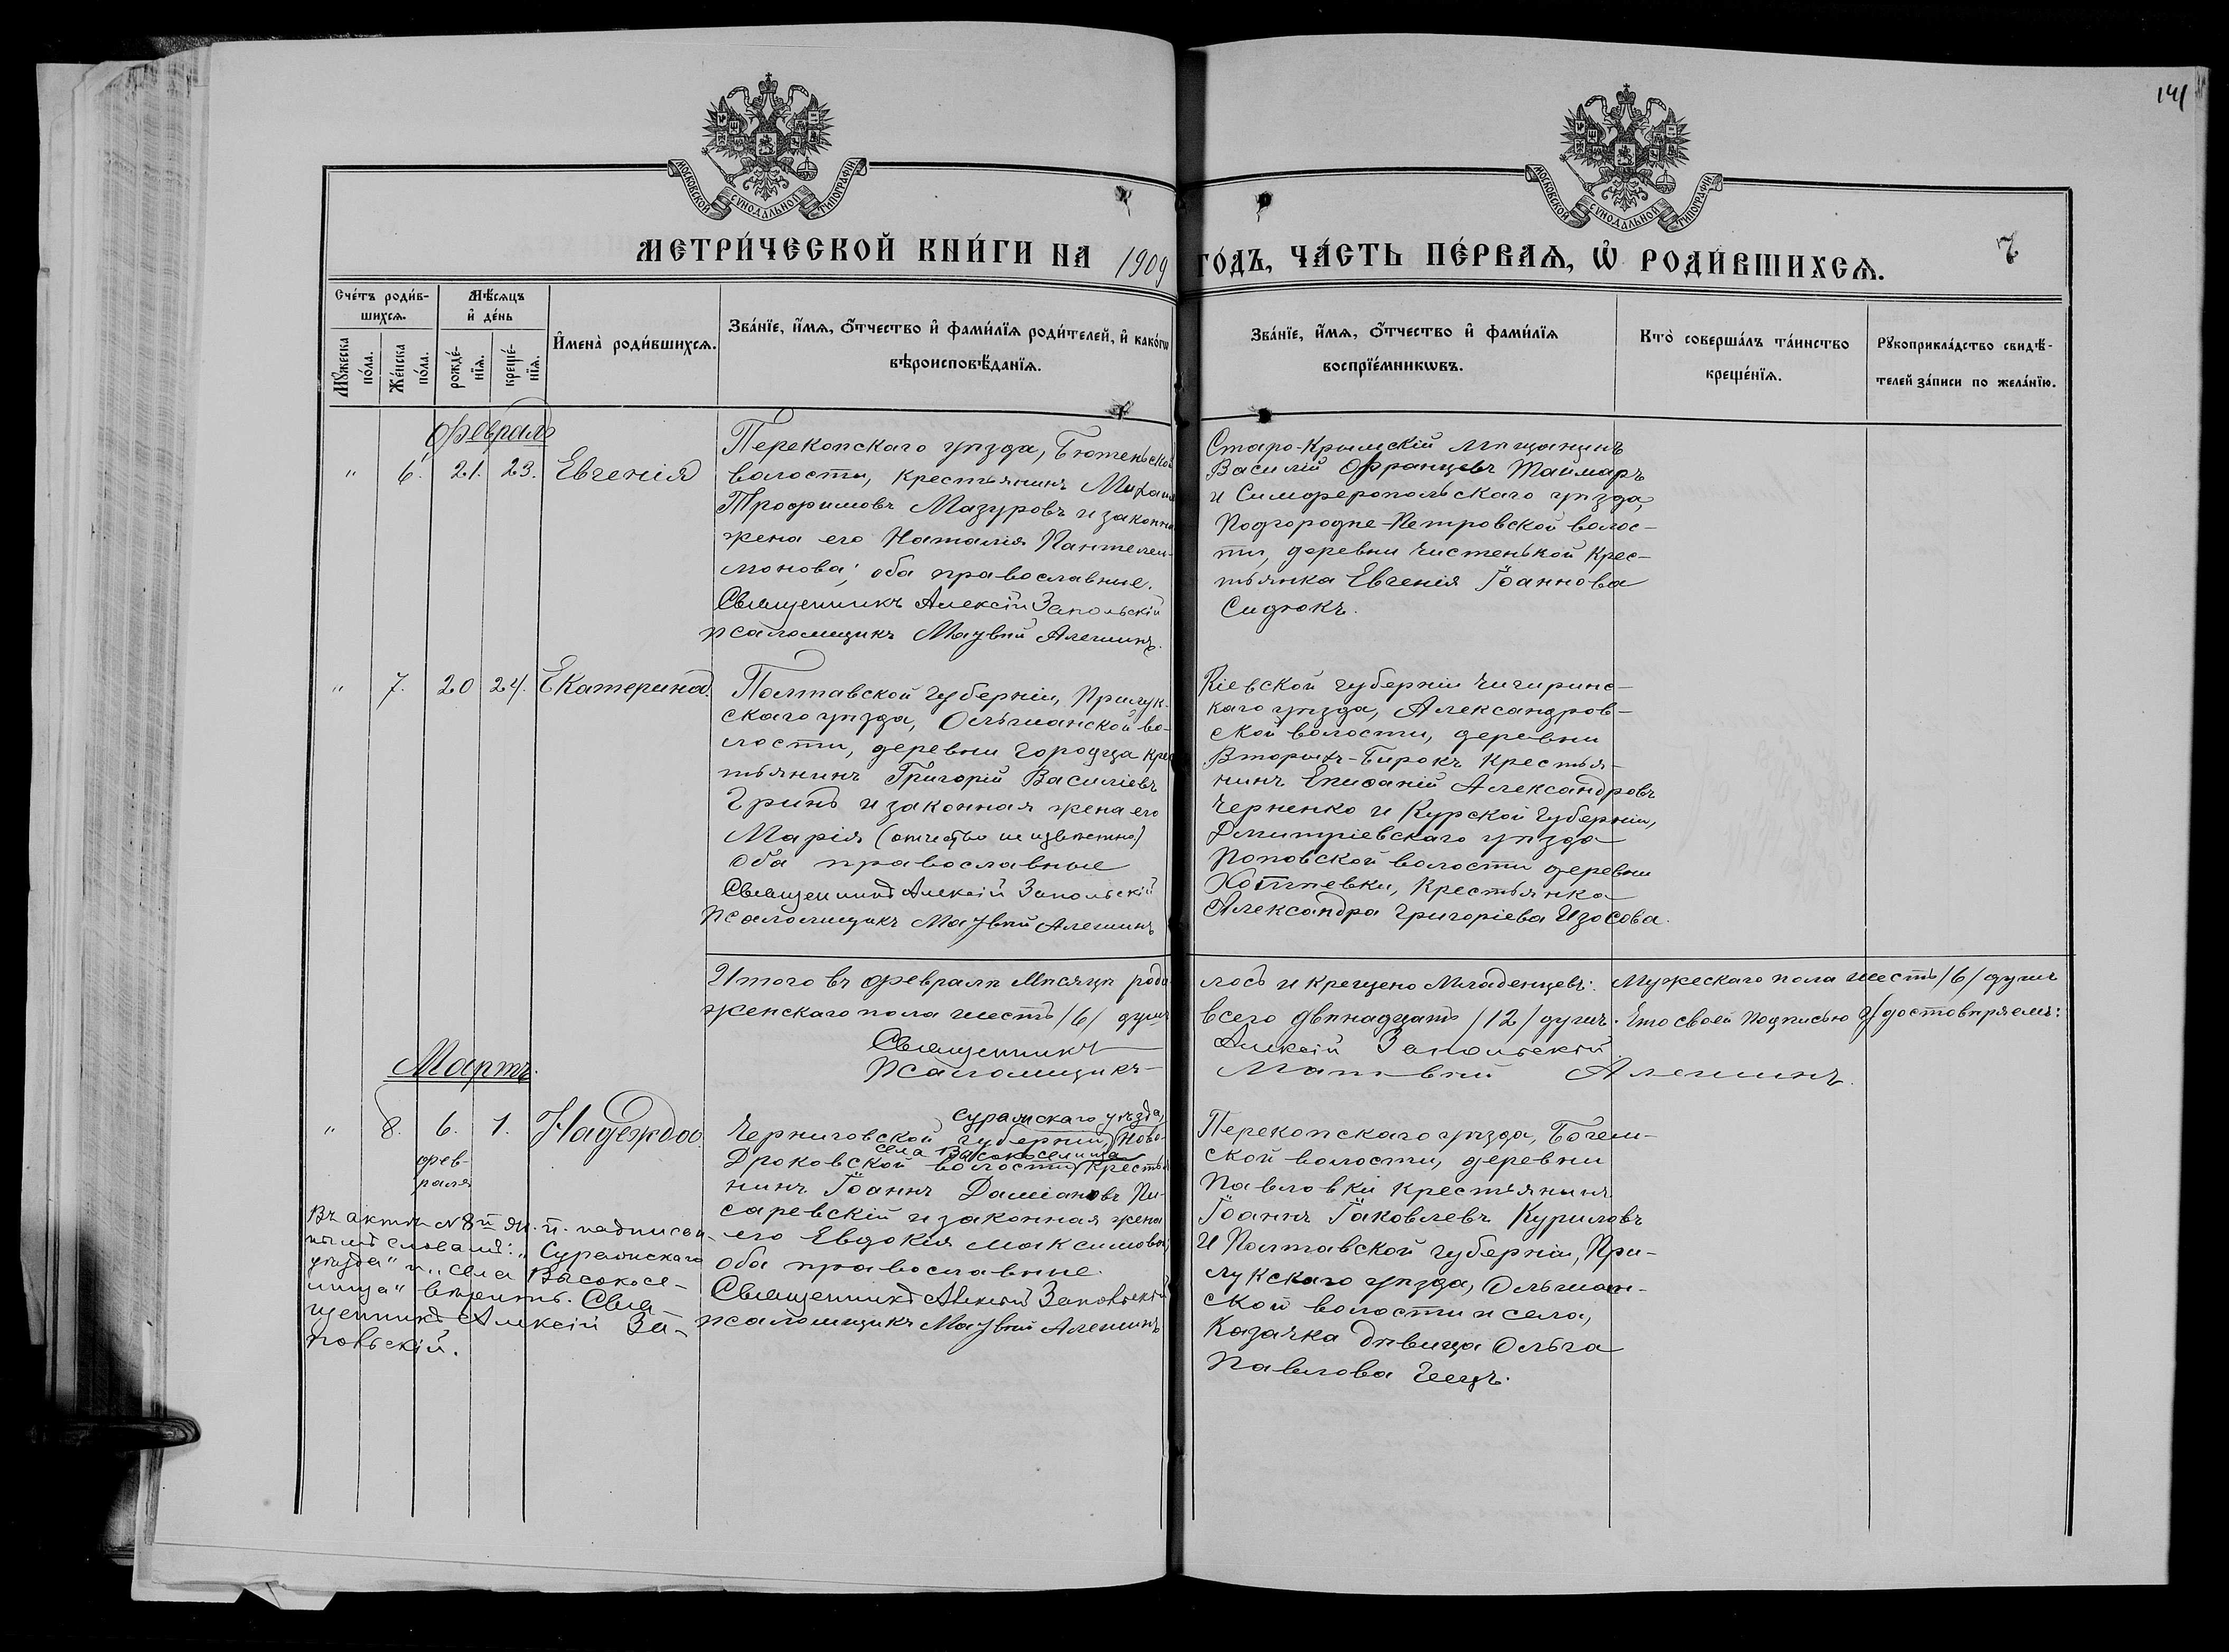 141
МОСКОВСКОЙ СѴНОДАЛЬНОЙ ТИПОГРАФІИ
МОСКОВСКОЙ СѴНОДАЛЬНОЙ ТИПОГРАФІИ
МЕТРИ́ЧЕСКОЙ КНИ́ГИ НА 1909 ГО́ДЪ, ЧА́СТЬ ПЕ́РВАѦ, Ѡ҆ РОДИ́ВШИХСѦ.
7
Сче́тъ роди́в-
шихсѧ.
Мꙋ́жеска
по́ла.
Же́нска
по́ла.
Мѣ́сѧцъ
и҆ де́нь
рожде́-
нїѧ.
креще́-
нїѧ.
И҆мена̀ роди́вшихсѧ.
Зва́нїе, и҆́мѧ, ѻ҆́тчество и҆ фами́лїѧ роди́телей, и҆ како́гѡ
вѣроисповѣ́данїѧ.
Зва́нїе, и҆́мѧ, ѻ҆́тчество и҆ фами́лїѧ
воспрїе́мникѡвъ.
Кто̀ соверша́лъ та́инство
креще́нїѧ.
Рꙋкоприкла́дство свидѣ́-
телей за́писи по жела́нїю.
Февраль
" 6. 21. 23. Евгенія
Перекопскаго уѣзда, Бютеньской
волости, крестьянинъ Михаи
Трофимовъ Мазуровъ и законна
жена его Наталія Пантелеи-
монова; оба православные.
Священникъ Алексій Запольскій
псаломщикъ Матвій Алешинъ.
Старо-Крымскій мѣщанинъ
Василій Францевъ Таймаръ
и Симферопольскаго уѣзда,
Подгородне-Петровской волос-
ти, деревни Чистенькой крес-
тьянка Евгенія Іоаннова
Сидюкъ.
" 7. 20 24. Екатерина.
Полтавской губерніи, Прилук-
скаго уѣзда, Ольшанской во-
лости, деревни Городца крес
тьянинъ Григорій Василіевъ
Гринь и законная жена его
Марія (отчество неизвѣстно)
оба православные
Священникъ Алексій Запольскій
Псаломщикъ Матвій Алешинъ
Кіевской губерніи Чигиринс-
каго уѣзда, Александров-
ской волости, деревни
Вторыхъ-Бирокъ крестья-
нинъ Епифаній Александровъ
Черненко и Курской губерніи,
Дмитріевскаго уѣзда
Поповской волости деревни
крестьянка
Александра Григоріева Изосова.
Итого въ февралѣ мѣсяцѣ роди лось и крещено младенцевъ: мужескаго пола шесть /6/ душъ
женскаго пола шесть /6/ душъ всего двѣнадцать /12/ душъ. Что своей подписью удостовѣряемъ:
Священникъ Алексій Запольскій.
Псаломщикъ Матвій Алешинъ.
Мартъ.
" 8. 6. 1. Надежда
фев-
раля
Суражскаго уѣзда,
Черниговской губерніи, Ново-
села Высокоселища
Дроковской волости крестья
нинъ Іоаннъ Даміановъ Пи-
саревскій и законная жена
его Евдокія Максимова,
оба православные.
Священникъ Алексій Запольскій
псаломщикъ Матвій Алешинъ
Перекопскаго уѣзда, Богем-
ской волости, деревни
Павловки крестьянинъ
Іоаннъ Іаковлевъ Куриловъ
и Полтавской губерніи, При-
лукскаго уѣзда, Ольшан-
ской волости и села,
Казачка дѣвица Ольга
Павлова
Въ актѣ № 8й ж. п. надписан-
нымъ словамъ: „Суражскаго
уѣзда" и „села Высокосе-
лища" вѣрить. Свя-
щенникъ Алексій За-
польскій.